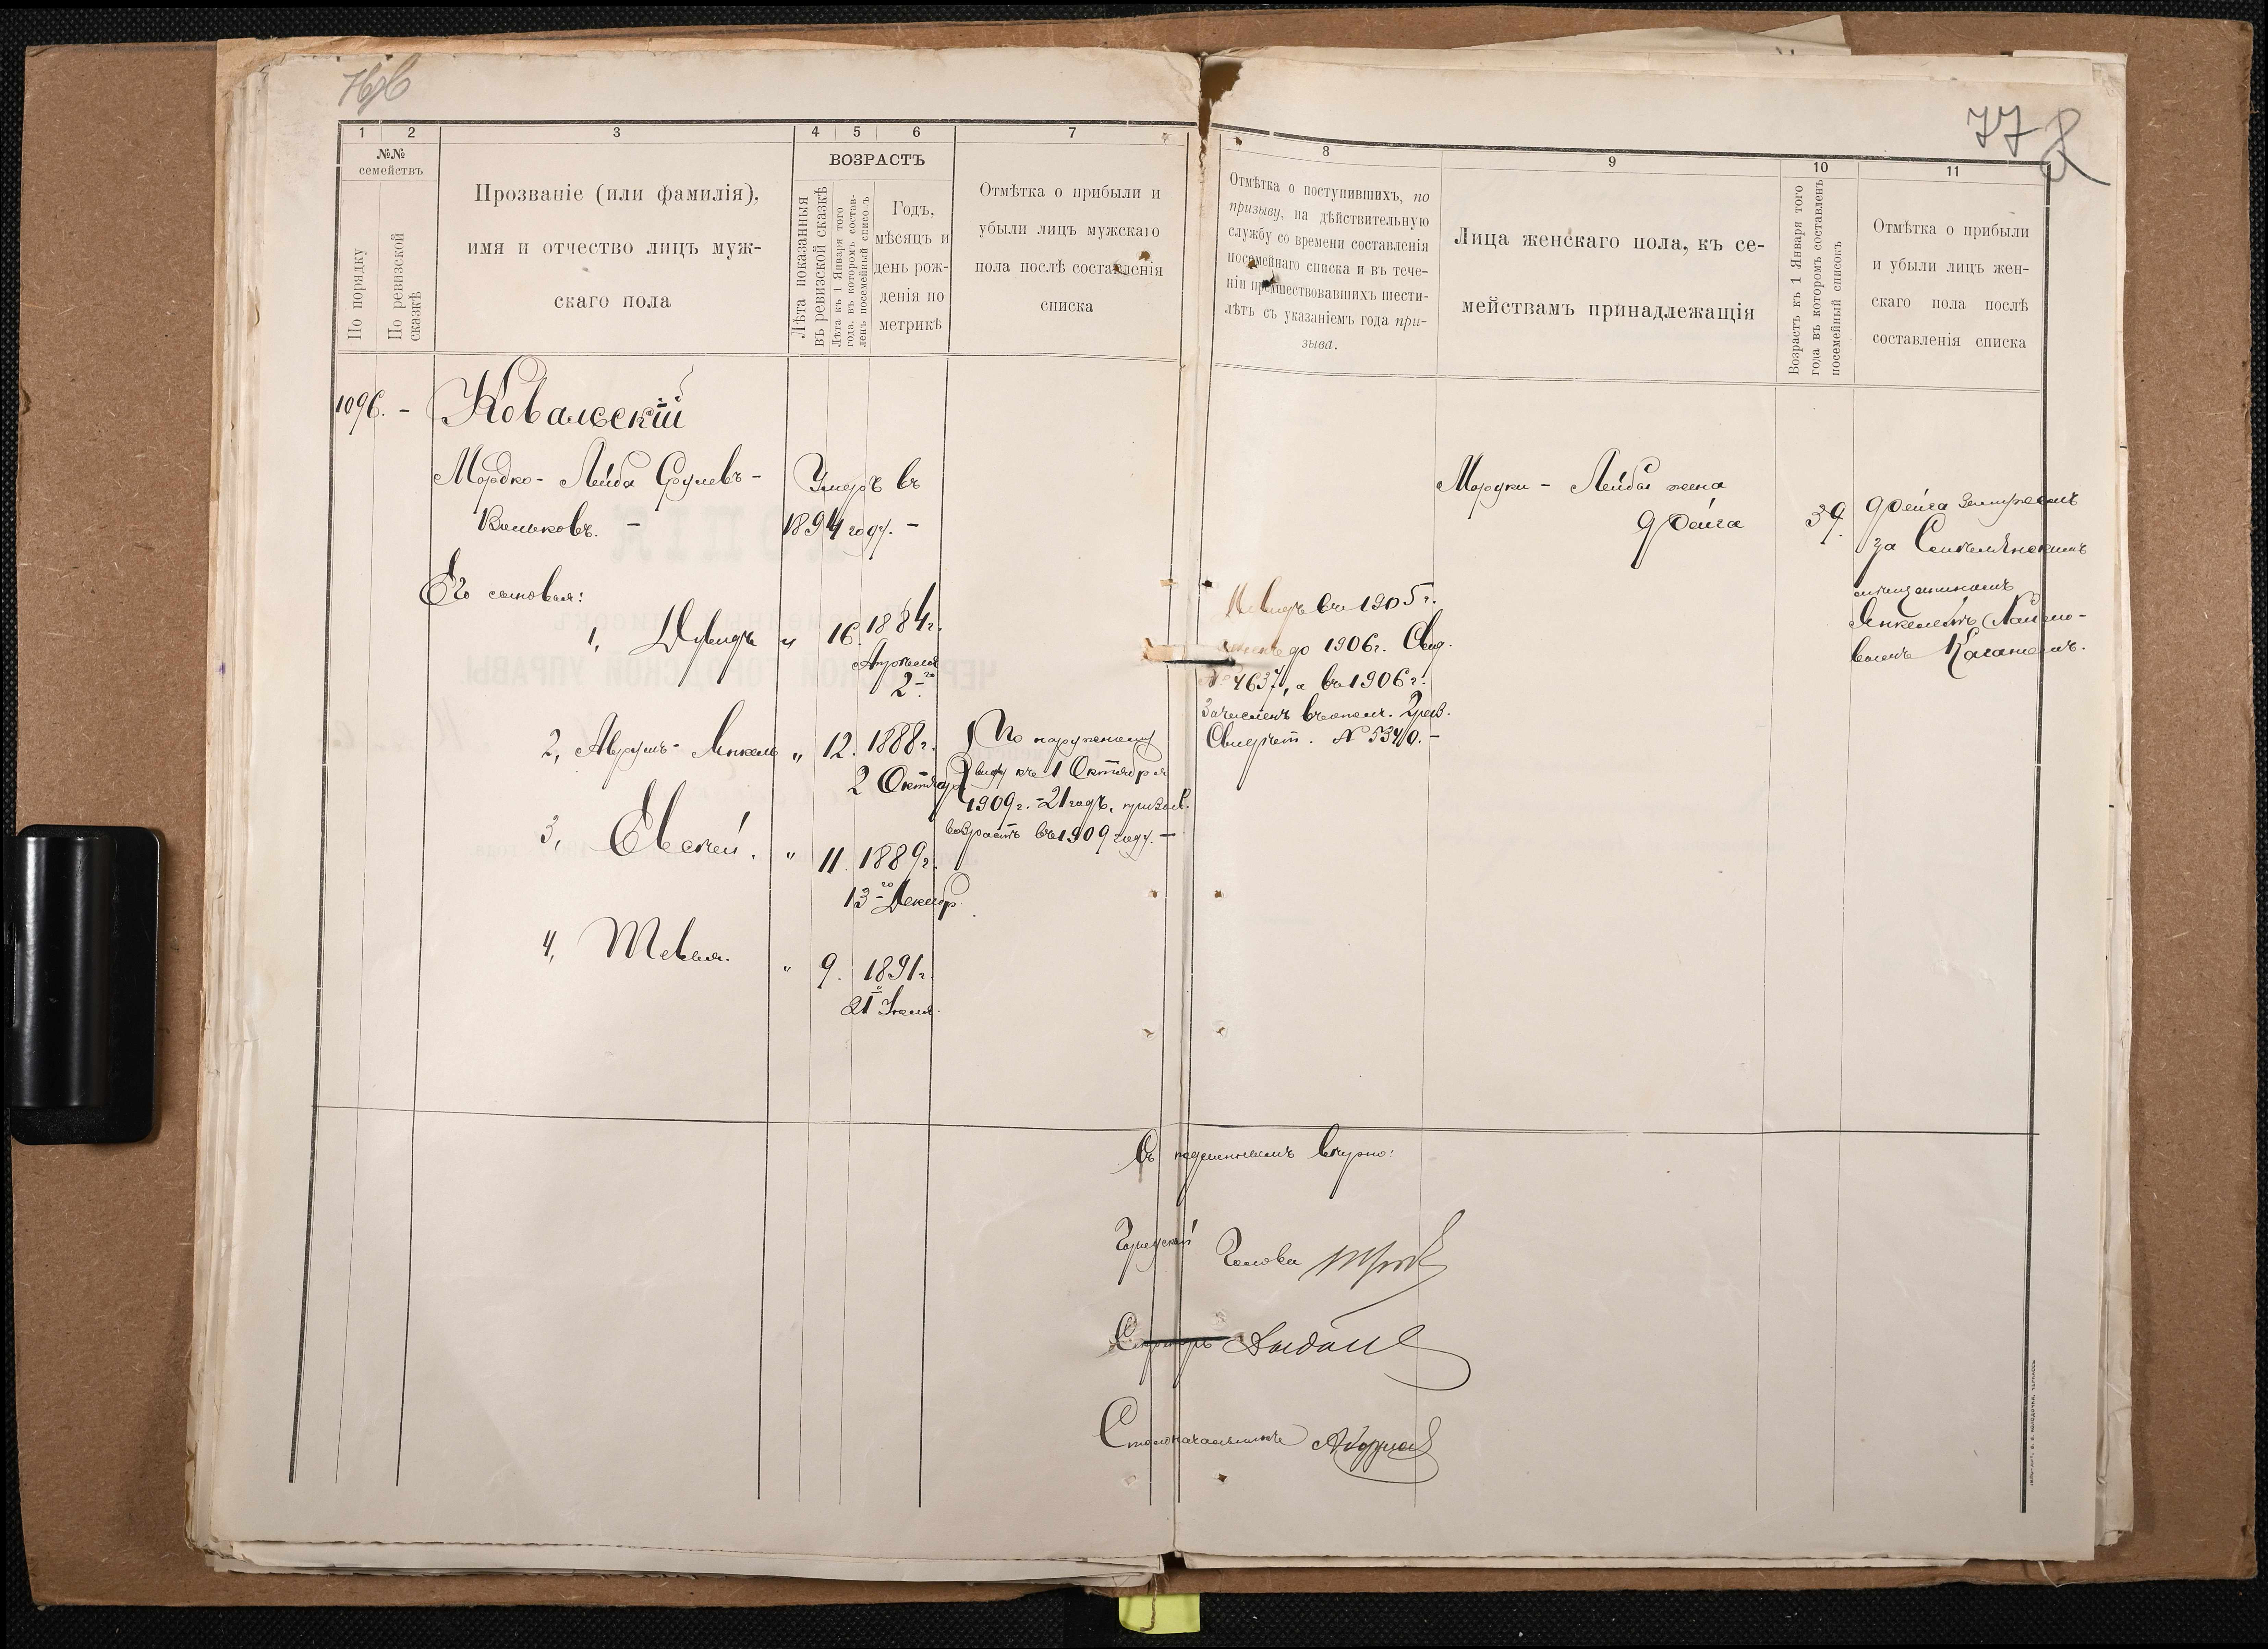 77
1
2
3
4
5
6
7
№№
семействъ
По порядку
По ревизской
сказкѣ
Прозваніе (или фамилія),
имя и отчество лицъ муж-
скаго пола
ВОЗРАСТЪ
Лѣта показанныя
въ ревизской сказкѣ
Лѣта къ 1 Января того
года, въ которомъ состав-
ленъ посемейный списокъ
Годъ,
мѣсяцъ и
день рож-
денія по
метрикѣ
Отмѣтка о прибыли и
убыли лицъ мужскаго
пола послѣ составленія
списка
1096. - Ковальскій
Мордко-Лейба Срулевъ-
Вольковъ. -
Умеръ въ
1894 году. -
Его сыновья:
1, Давидъ " 16. 1884г.
Апрѣля
2-го
2, Аврумъ-Янкель " 12. 1888г.
2 Октября
По наружному
виду къ 1 Октября
1909г. - 21 годъ, призыв.
возрастъ въ 1909 году. -
3, Евсей. " 11. 1889г.
13-го Декабр.
4, Тевья. " 9. 1891г.
21 Іюля.
8
9
10
11
Отмѣтка о поступившихъ, по
призыву, на дѣйствительную
службу со времени составленія
посемейнаго списка и въ тече-
ніи предшествовавшихъ шести-
лѣтъ съ указаніемъ года при-
зыва.
Лица женскаго пола, къ се-
мействамъ принадлежащія
Возрастъ къ 1 Января того
года въ которомъ составленъ
посемейный списокъ
Отмѣтка о прибыли
и убыли лицъ жен-
скаго пола послѣ
составленія списка
Давидъ въ 1905г.
до 1906г. Свид.
№ 4637, а въ 1906г.
Зачисленъ въ ополч.
Свидѣт. № 5340. -
Мордки-Лейбы жена
Фейга
39.
Фейга замужемъ
за
мѣщаниномъ
Янкелемъ
Каганомъ.
Съ подлиннымъ вѣрно:
Городской Голова
Секретарь
Столоначальникъ